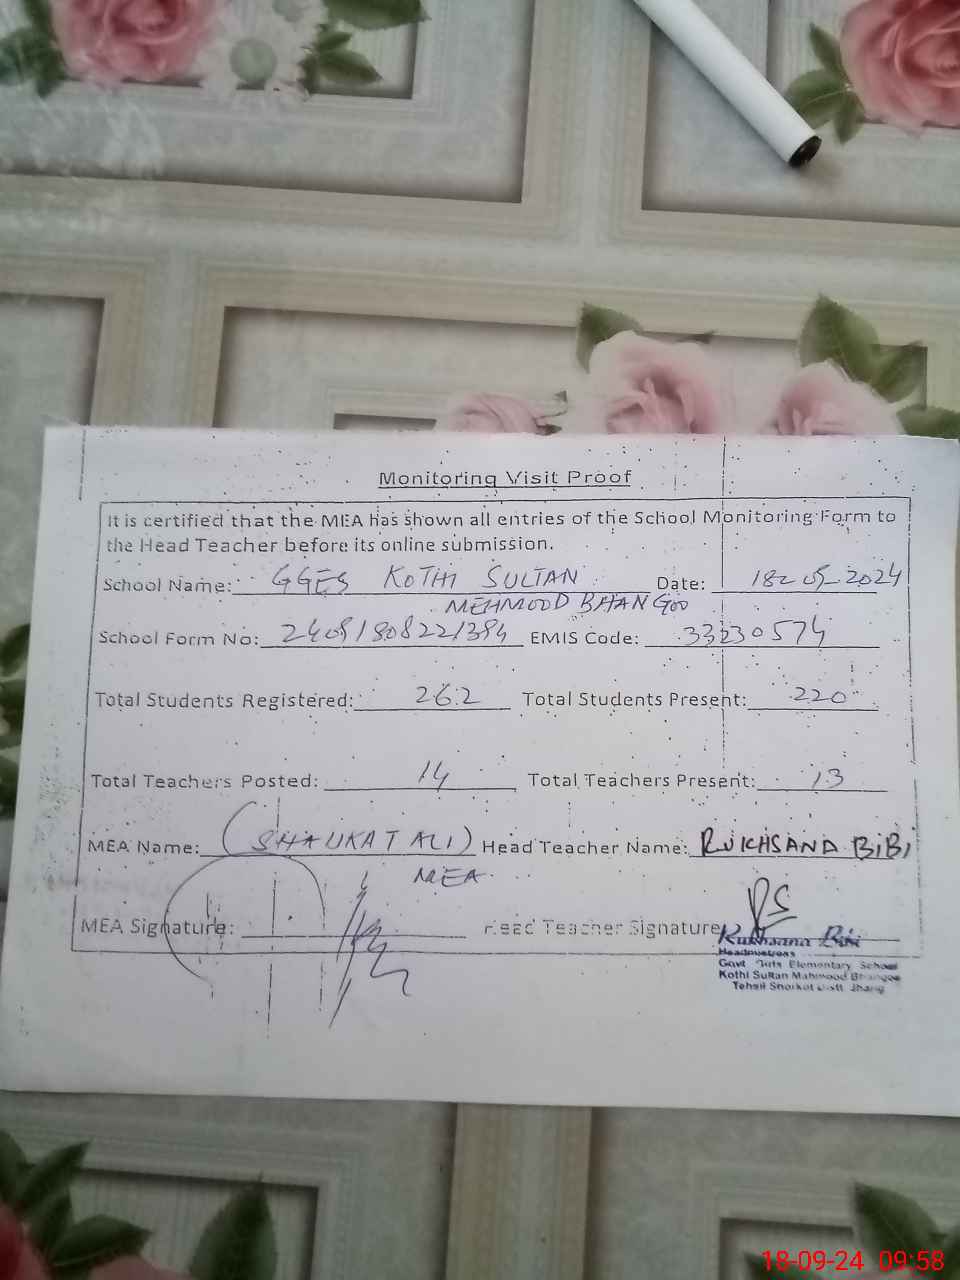 Monitoring Visit Proof
It is certified that the MEA has shown all entries of the School Monitoring Form to
the Head Teacher before its online submission.
School Name: GGES KOTHI SULTAN Date: 18-09-2024
MEHMOOD BHANGOO
School Form No: EMIS Code: 33230574
Total Students Registered: 262 Total Students Present: 220
Total Teachers Posted: 14 Total Teachers Present: 13
MEA Name: (SHAUKAT ALI) Head Teacher Name: RUKHSANA BiBi
MEA
MEA Signature: Head Teacher Signature
Rukhsana Bibi
Headmistress
Govt Girls Elementary School
Kothi Sultan Mahmood Bhangoo
Tehsil Shorkot Distt Jhang
18-09-24 09:58